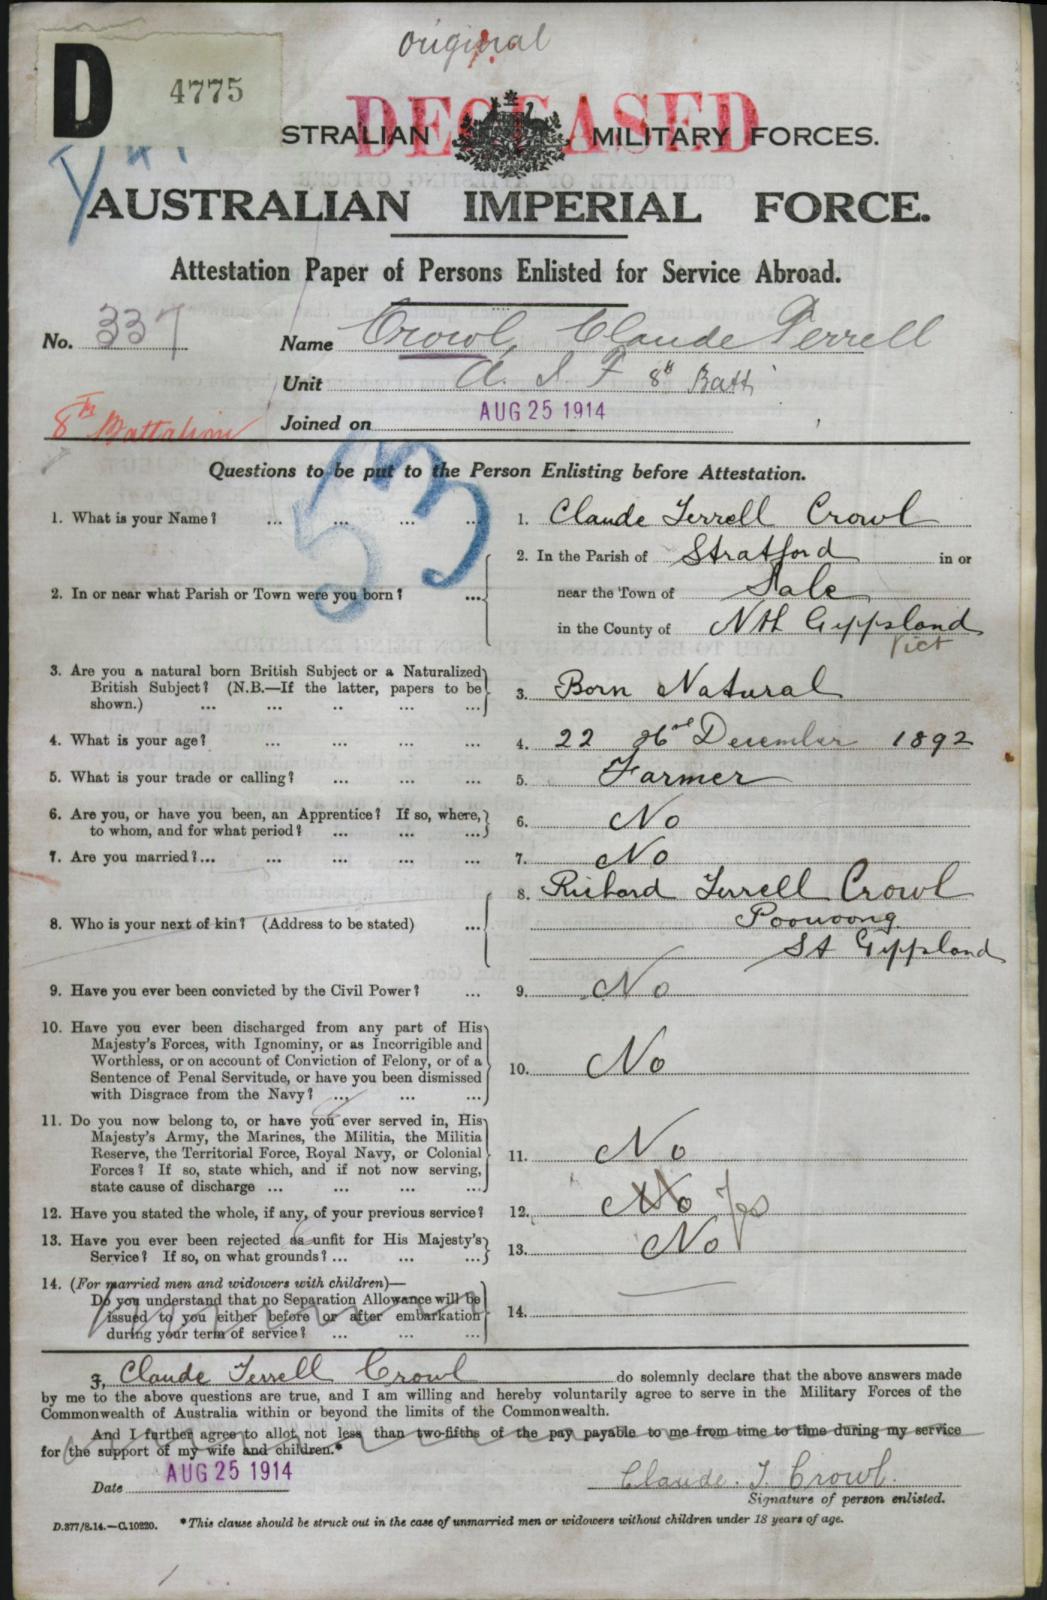 Original
D 4775
DECEASED
STRALIAN MILITARY FORCES.
AUSTRALIAN IMPERIAL FORCE.
Attestation Paper of Persons Enlisted for Service Abroad.
No. 337 Name Crowl, Claude Terrell
Unit A. I. F 8th Batt
8th Battalion Joined on AUG 25 1914
53
Questions to be put to the Person Enlisting before Attestation.
1. What is your Name? ... ... ... ... 1. Claude Terrell Crowl
2. In the Parish of Stratford in or
2. In or near what Parish or Town were you born? ... near the Town of Sale
in the County of Nth Gippsland
Vict
3. Are you a natural born British Subject or a Naturalized
British Subject? (N.B.—If the latter, papers to be 3. Born Natural
shown.) ... ... .. ... ...
4. What is your age? ... ... ... ... 4. 22 December 1892
5. What is your trade or calling? ... ... ... 5. Farmer
6. Are you, or have you been, an Apprentice? If so, where, 6. No
to whom, and for what period? ... ... ...
7. Are you married?... ... ... ... ... 7. No
8. Richard Terrell Crowl
8. Who is your next of kin? (Address to be stated) ... Poowoong
Sth Gippsland
9. Have you ever been convicted by the Civil Power? ... 9. No
10. Have you ever been discharged from any part of His
Majesty's Forces, with Ignominy, or as Incorrigible and
Worthless, or on account of Conviction of Felony, or of a 10. No
Sentence of Penal Servitude, or have you been dismissed
with Disgrace from the Navy? ... ... ...
11. Do you now belong to, or have you ever served in, His
Majesty's Army, the Marines, the Militia, the Militia
Reserve, the Territorial Force, Royal Navy, or Colonial 11. No
Forces? If so, state which, and if not now serving,
state cause of discharge ... ... ... ...
12. Have you stated the whole, if any, of your previous service? 12. No Yes
13. Have you ever been rejected as unfit for His Majesty's 13. No
Service? If so, on what grounds? ... ... ...
14. (For married men and widowers with children)—
Do you understand that no Separation Allowance will be
issued to you either before or after embarkation 14.
during your term of service? ... ... ...
I, Claude Terrell Crowl do solemnly declare that the above answers made
by me to the above questions are true, and I am willing and hereby voluntarily agree to serve in the Military Forces of the
Commonwealth of Australia within or beyond the limits of the Commonwealth.
And I further agree to allot not less than two-fifths of the pay payable to me from time to time during my service
for the support of my wife and children.*
Date AUG 25 1914 Claude. T. Crowl.
Signature of person enlisted.
D.377/8.14.—C.10220. *This clause should be struck out in the case of unmarried men or widowers without children under 18 years of age.